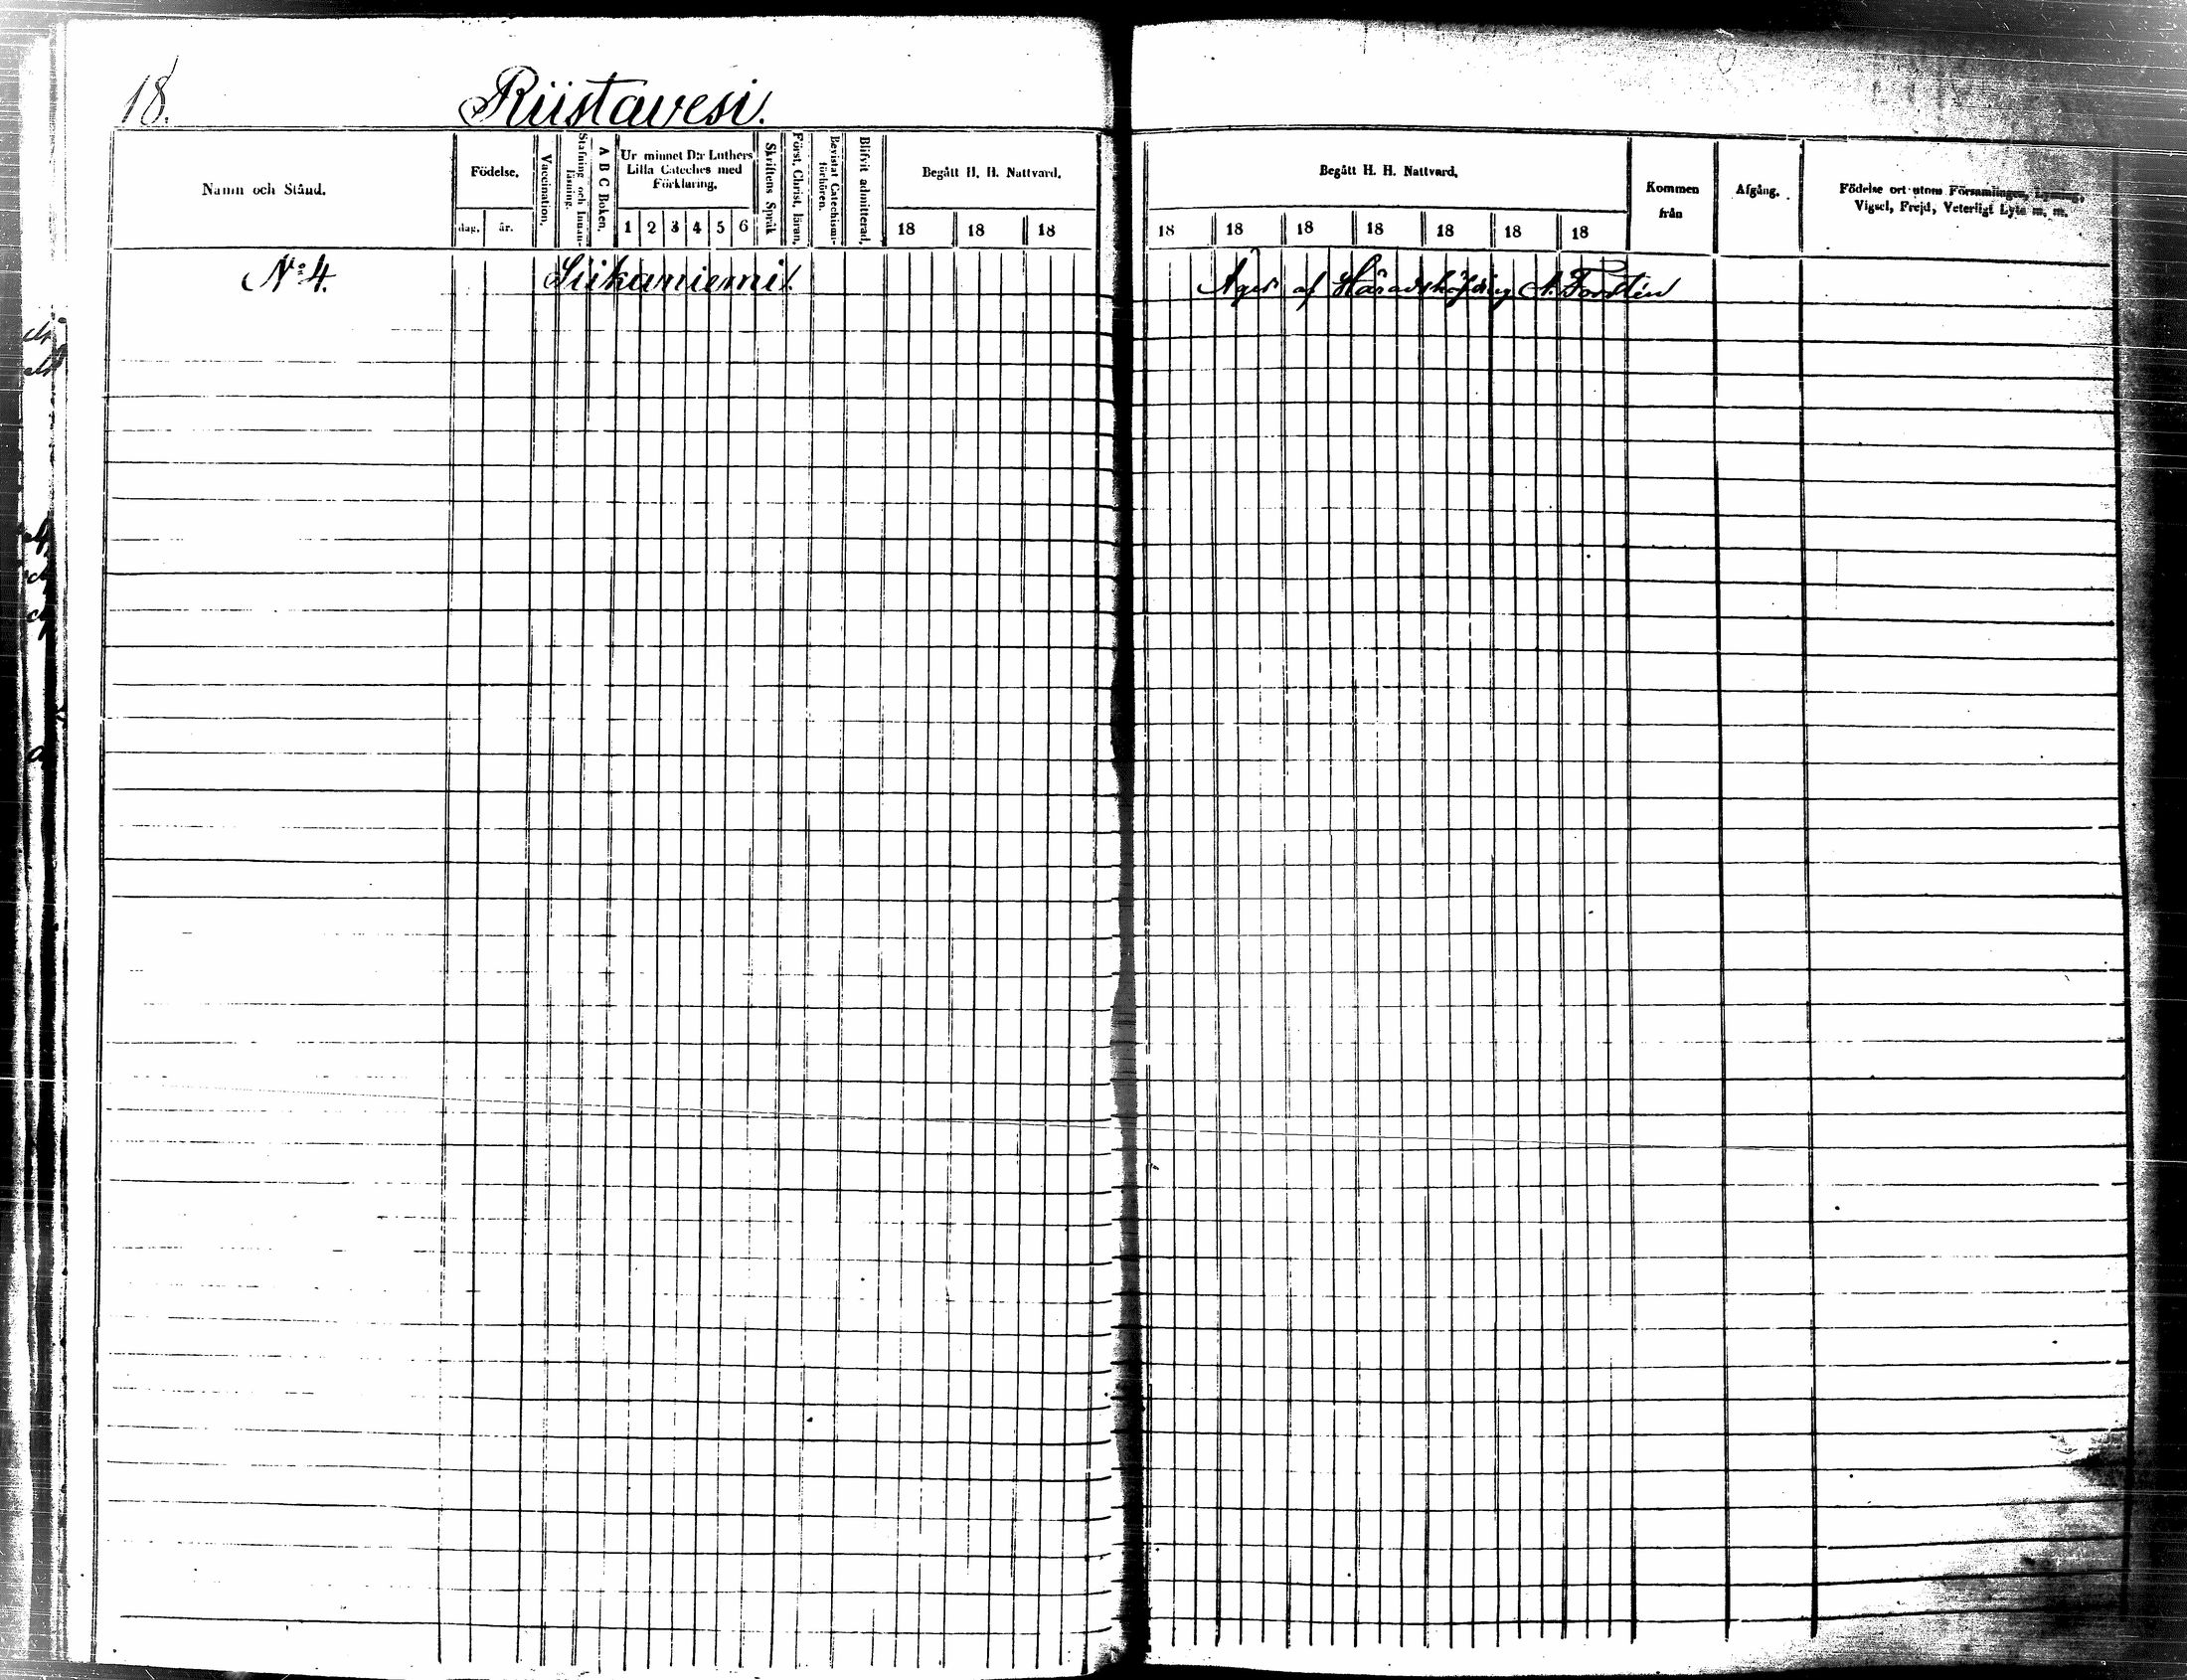 18.
Riistavesi.
Namn och Stånd.
Födelse.
dag.
år.
Vaccination.
Stafning och Innanläsning.
A B C Boken.
Ur minnet D:r Luthers
Lilla Cateches med
Förklaring.
1 2 3 4 5 6
Skriftens Språk
Först. Christ. läran.
Bevistat Catechismiförhören.
Blifvit admitterad.
Begått H. H. Nattvard.
18 18 18
Begått H. H. Nattvard.
18 18 18 18 18 18 18
Kommen
från
Afgång.
Födelse ort utom Församlingen, Lysning,
Vigsel, Frejd, Veterligt Lyte m. m.
N:o 4. Siikaniemi. Äges af Häradshöfding A. Forstén